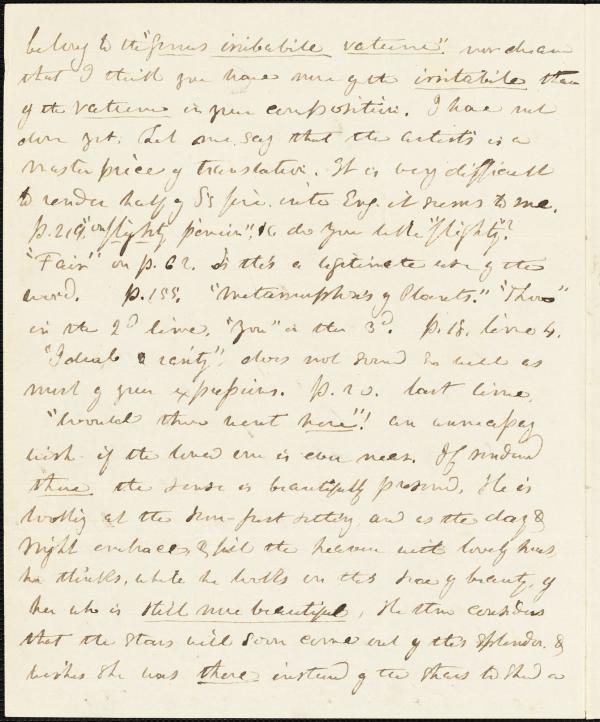 belong to the "genus irritabile vatum", nor do I mean
that I think you have more of the irritabile than
of the vatum in your composition. I have not
done yet. Let me say that the artists is a
master piece of translation. It is very difficult
to render half of S's fire into Eng. it seems to me.
p. 219, "flighty do you like "flighty"?
"Fair" on p. 62. Is this a legitimate use of the
word. p. 155. "Metamorphoses of Plants." "Thou"
in the 2d line, "you" in the 3d. p. 18. line 4.
"Ideal" does not sound so well as
most of your expressions. p. 20. last line,
"would thou wert here"! an unneccessary
wish if the loved one is ever near. If rendered
there the sense is beautifully preserved. He is
looking at the sun just setting and as the day &
night embrace & fill the heaven with lovely hues,
he thinks, while he looks on this scene of beauty, of
her who is still more beautiful, He then considers
that the stars will soon come out of this splendor &
wishes she was there instead of the stars to shed a